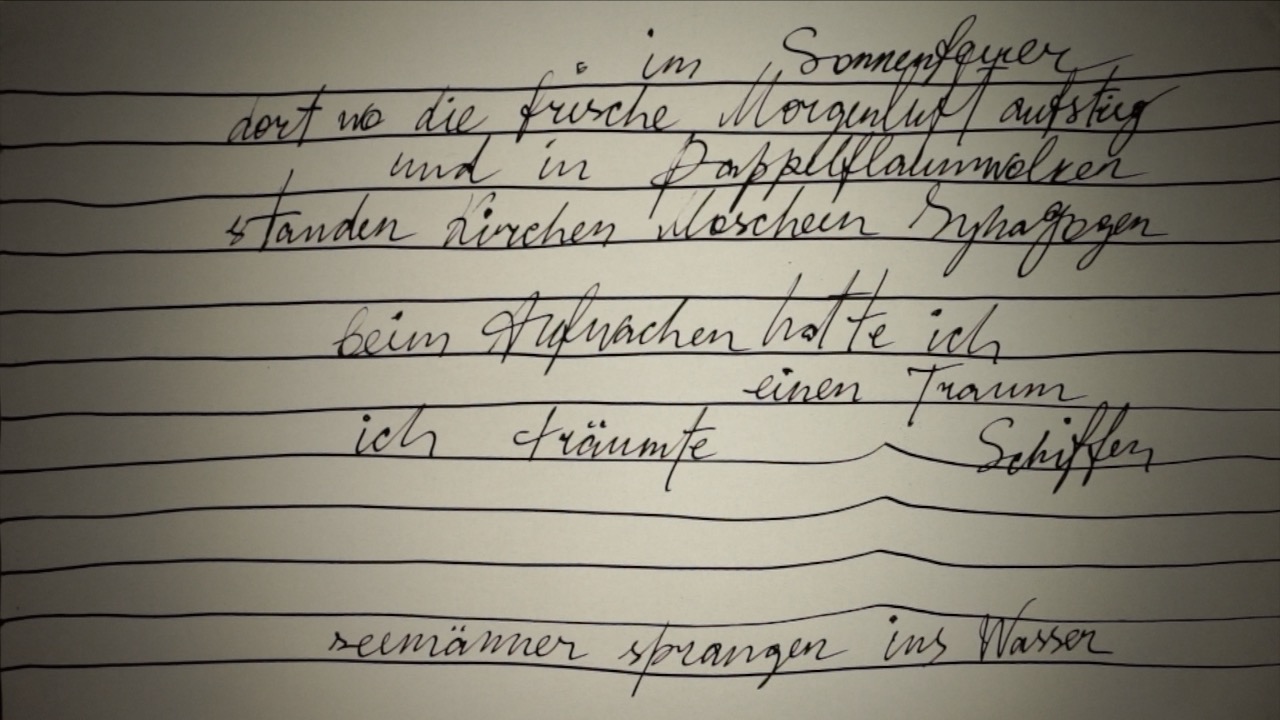 im Sonnenfeuer
dort wo die frische Morgenluft aufstieg
und in Pappelflaumwolken
standen Kirchen Moscheen Synagogen
beim Aufwachen hatte ich
einen Traum
ich träumte Schiffen
seemänner sprangen ins Wasser